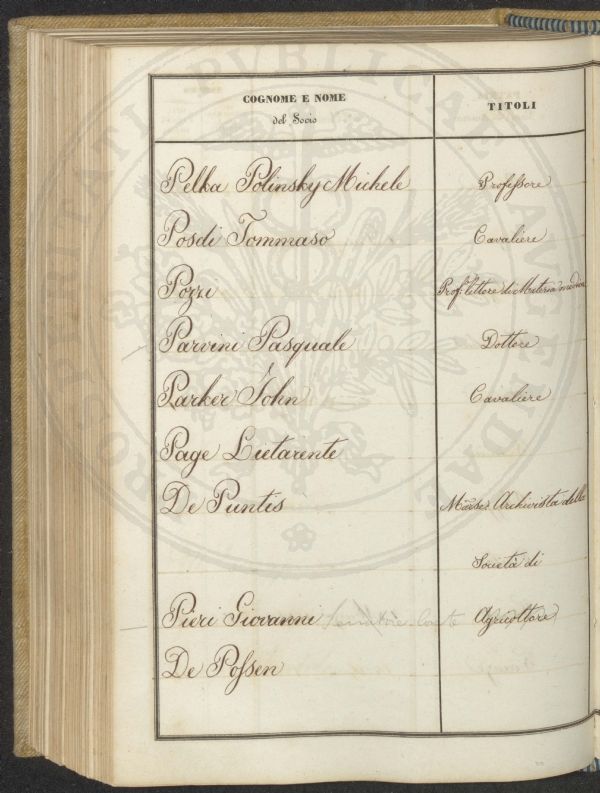 COGNOME E NOME
del Socio
TITOLI
Pelka Polinsky Michele Professore
Posdi Tommaso Cavaliere
Pozzi Prof. lettore di Materia medica
Parvini Pasquale Dottore
Parker John Cavaliere
Page Lietarente
De Puntis Marse Archivista della
Società di
Pieri Giovanni Senatore Conte Agricoltore
De Possen
PROSPERITATI PUBLICAE AUGENDAE